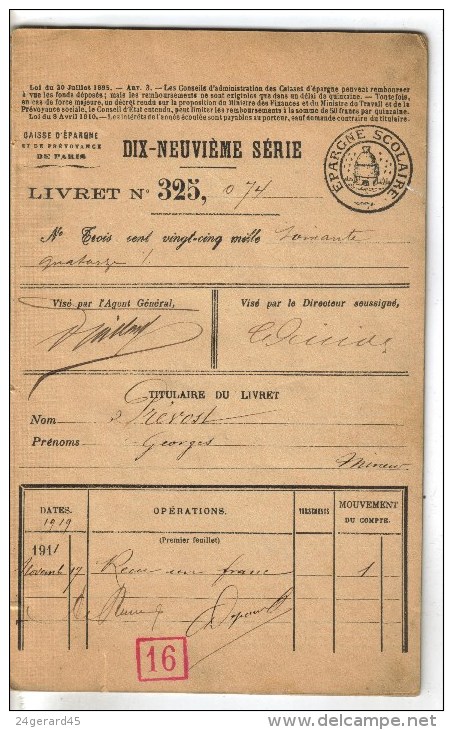 Loi du 20 Juillet 1895. — Art. 3. — Les Conseils d'administration des Caisses d'épargne peuvent rembourser
à vue les fonds déposés ; mais les remboursements ne sont exigibles que dans un délai de quinzaine. — Toutefois,
en cas de force majeure, un décret rendu sur la proposition du Ministre des Finances et du Ministre du Travail et de la
Prévoyance sociale, le Conseil d'État entendu, peut limiter les remboursements à la somme de 50 francs par quinzaine.
Loi du 8 Avril 1910. — Les intérêts de l'année écoulée sont payables au porteur, sauf demande contraire du titulaire.
CAISSE D'ÉPARGNE
ET DE PRÉVOYANCE
DE PARIS
DIX-NEUVIÈME SÉRIE
ÉPARGNE SCOLAIRE
LIVRET N° 325, 074
N° Trois cent vingt-cinq mille soixante
quatorze
Visé par l'Agent Général,
Visé par le Directeur soussigné,
TITULAIRE DU LIVRET
Nom Prévost
Prénoms Georges
Mineur
DATES.
OPÉRATIONS.
VERSEMENTS
MOUVEMENT
DU COMPTE.
1919
(Premier feuillet)
1911
Novembre 17 Reçu un franc 1
16
24gerard45
www.delcampe.net